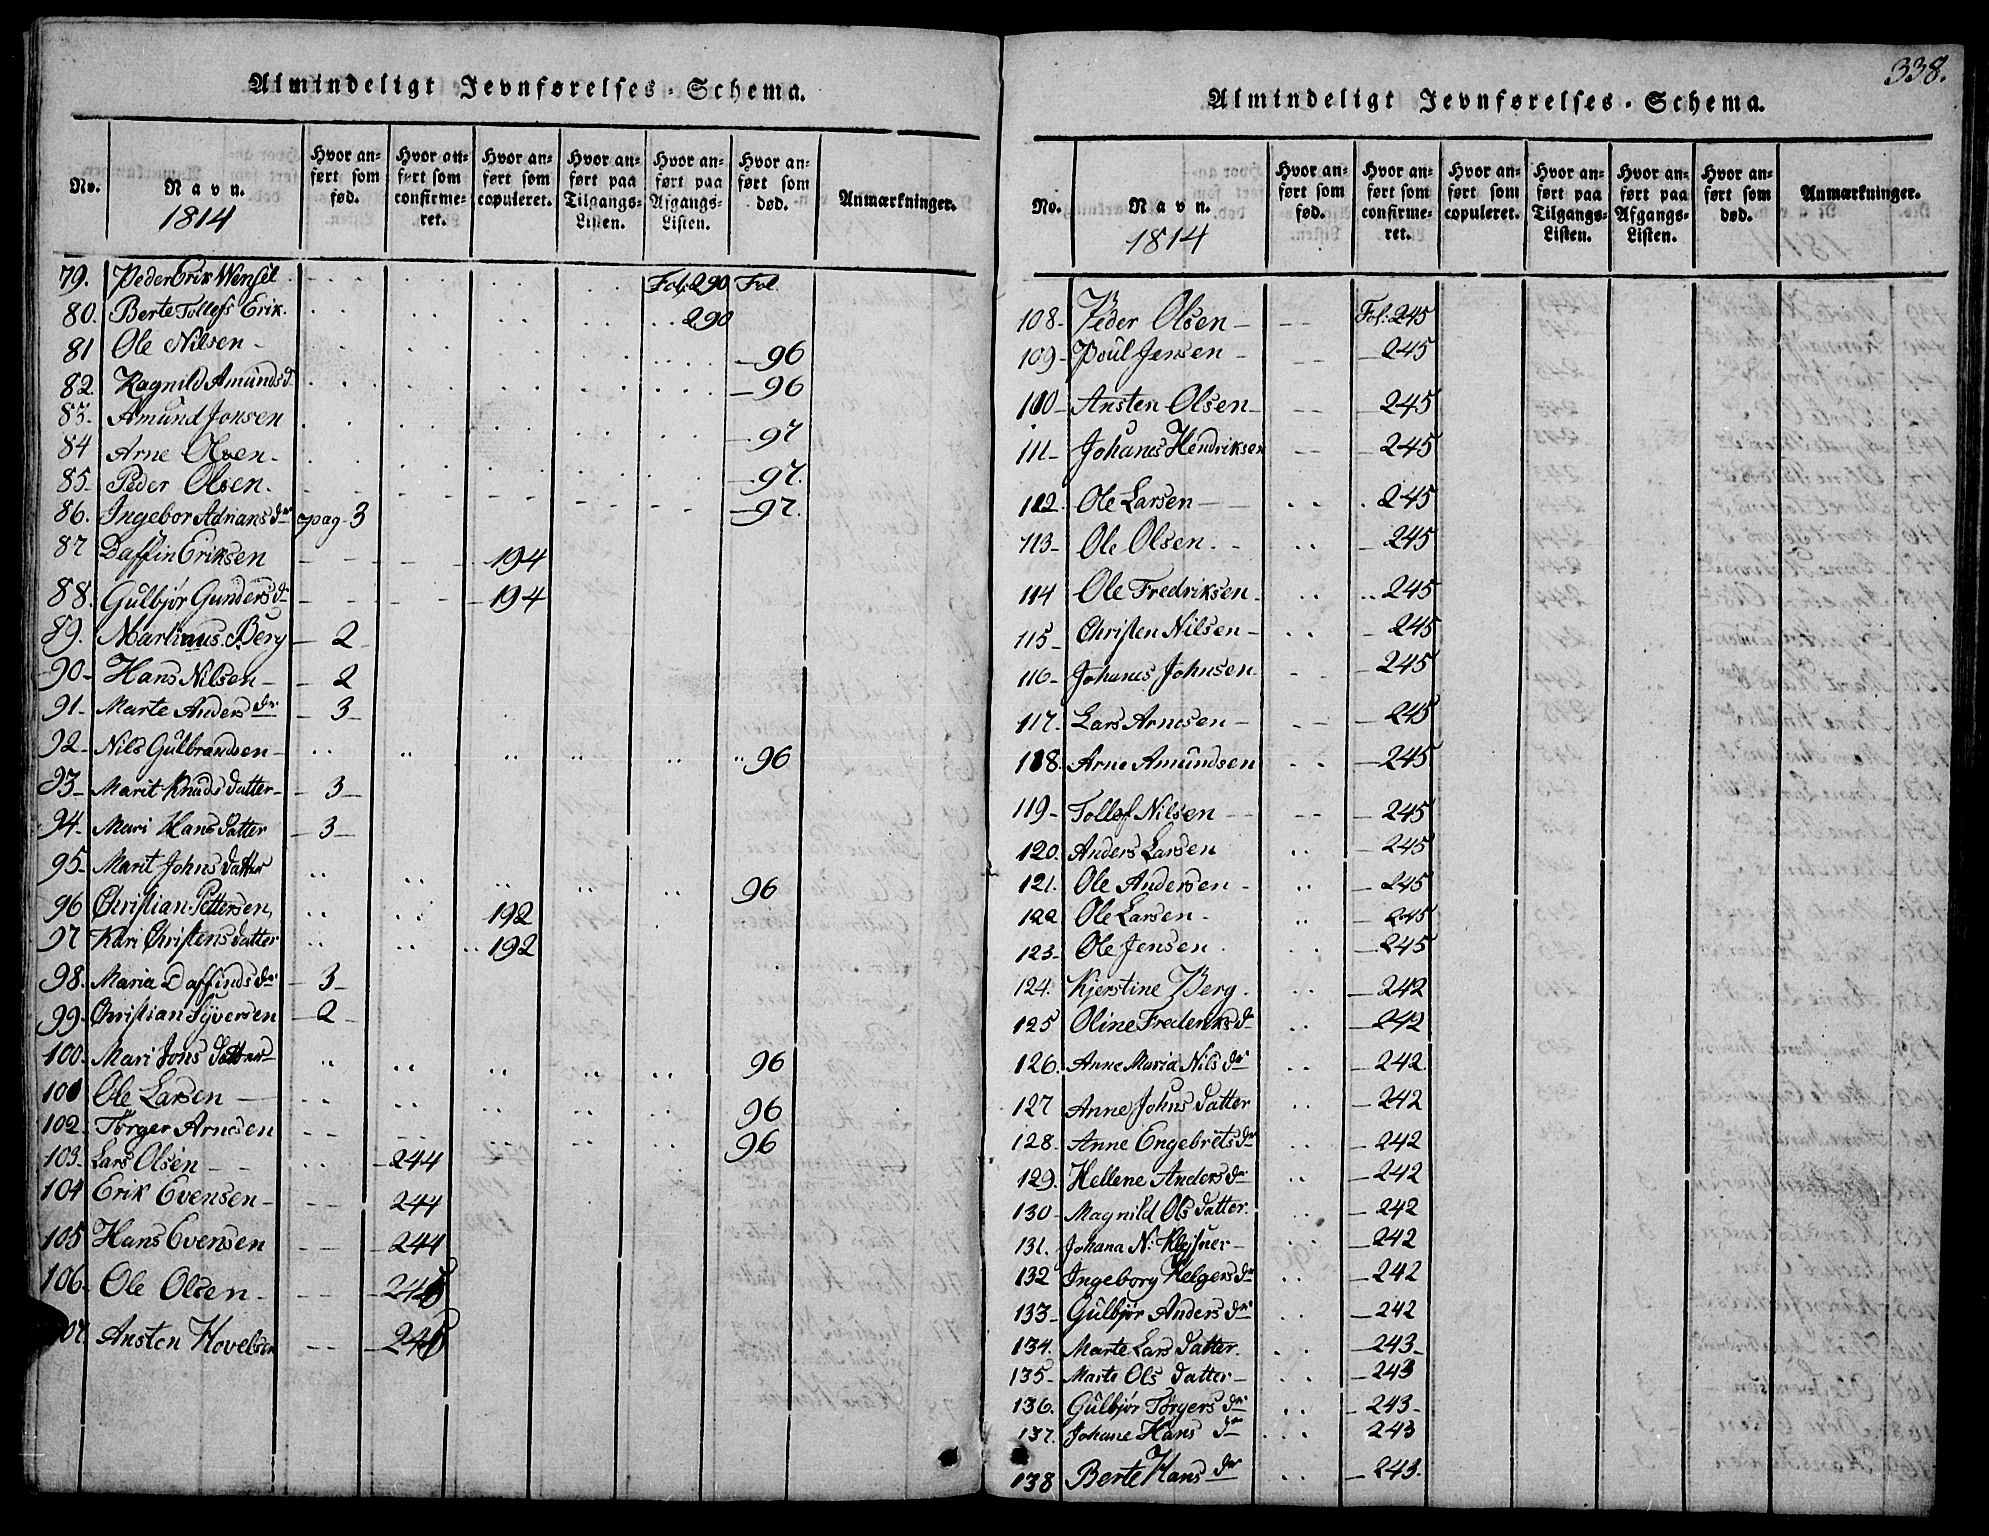 Almindeligt Jevnførelses-Schema.
No. Navn. 1814 Hvor anført som fød. Hvor anført som confirmeret. Hvor anført som copuleret. Hvor anført paa Tilgangs-Listen. Hvor anført paa Afgangs-Listen. Hvor anført som død. Anmærkninger.
79. Peder Erik Wensel Fol. 290 Fol.
80. Berte Tollefs Erik. 290
81 Ole Nilsen - 96
82. Ragnild Amunds d - 96
83. Amund Jonsen - 97
84 Arne Olsen - 97.
85. Peder Olsen - 97.
86. Ingebor Adrians dr pag. 3
87 Daffin Eriksen - 194
88. Gulbjør Gunders dr - 194
89. Martinus Berg - 2
90- Hans Nilsen - 2
91- Marte Anders dr - 3
92- Nils Gulbrandsen - 96
93- Marit Knuds datter - 3
94- Mari Hans datter - 3
95- Marit Johns datter 96
96 Christian Pettersen 192
97 Kari Christens datter 192
98. Maria Daffinds dr - 3
99. Christian Syversen - 2
100. Mari Jons datter 96
101 Ole Larsen 96
102. Törger Arnesen 96
103- Lars Olsen - 244
104 Erik Evensen - 244
105 Hans Evensen - 244
106. Ole Olsen - 245
107. Ansten Hovelsen - 245
338.
Almindeligt Jevnførelses-Schema.
No. Navn. 1814 Hvor anført som fød. Hvor anført som confirmeret. Hvor anført som copuleret. Hvor anført paa Tilgangs-Listen. Hvor anført paa Afgangs-Listen. Hvor anført som død. Anmærkninger.
108- Peder Olsen - Fol: 245
109- Poul Jensen - 245
110- Ansten Olsen - 245
111- Johanes Hendriksen - 245
112. Ole Larsen - 245
113- Ole Olsen - 245
114 Ole Fredriksen - 245
115- Christen Nilsen - 245
116- Johanes Johnsen - 245
117- Lars Arnesen - 245
118. Arne Amundsen - 245
119- Tollef Nilsen - 245
120. Anders Larsen - 245
121. Ole Andersen - 245
122 Ole Larsen - 245
123- Ole Jensen - 245
124. Kjerstine Berg - 242
125 Oline Frederiks dr - 242
126. Anne Maria Nils dr - 242
127 Anne Johns datter - 242
128- Anne Engebrets dr - 242
129. Hellene Anders dr - 242
130- Magnild Ols datter - 242
131. Johana N: Klejsner - 242
132 Ingeborg Helgers dr - 242
133- Gulbjør Anders dr - 242
134. Marte Lars datter - 243-
135- Marte Ols datter - 243
136. Gulbjør Törgers dr - 243-
137. Johane Hans dr 243
138 Berte Hans dr - 243.